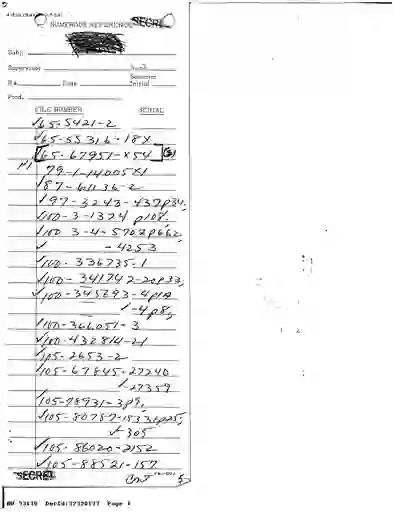 NUMEROUS REFERENCE
SECRET
Subj:
Supervisor Room
R# Date Searcher Initial
Prod.
FILE NUMBER SERIAL
✓65-5421-2
✓65-55316-18X
✓65-67951-X54
79-1-14005X1
✓87-61136-2
✓97-3243-437p34,
✓100-3-1374 p108,
✓100 3-4-5702p662,
✓ -4253
✓100-336735-1
✓100-341742-20p33,
✓100-345293-4p1A
✓-4p8,
✓100-366051-3
✓100-432814-21
✓105-2653-2
✓105-67845-27240
✓-27359
✓105-78931-3p9,
✓105-80787-1533 p25,
✓-305
✓105-86020-2152
✓105-88521-157
SECRET
Cont 5
DocId:32320197 Page 6